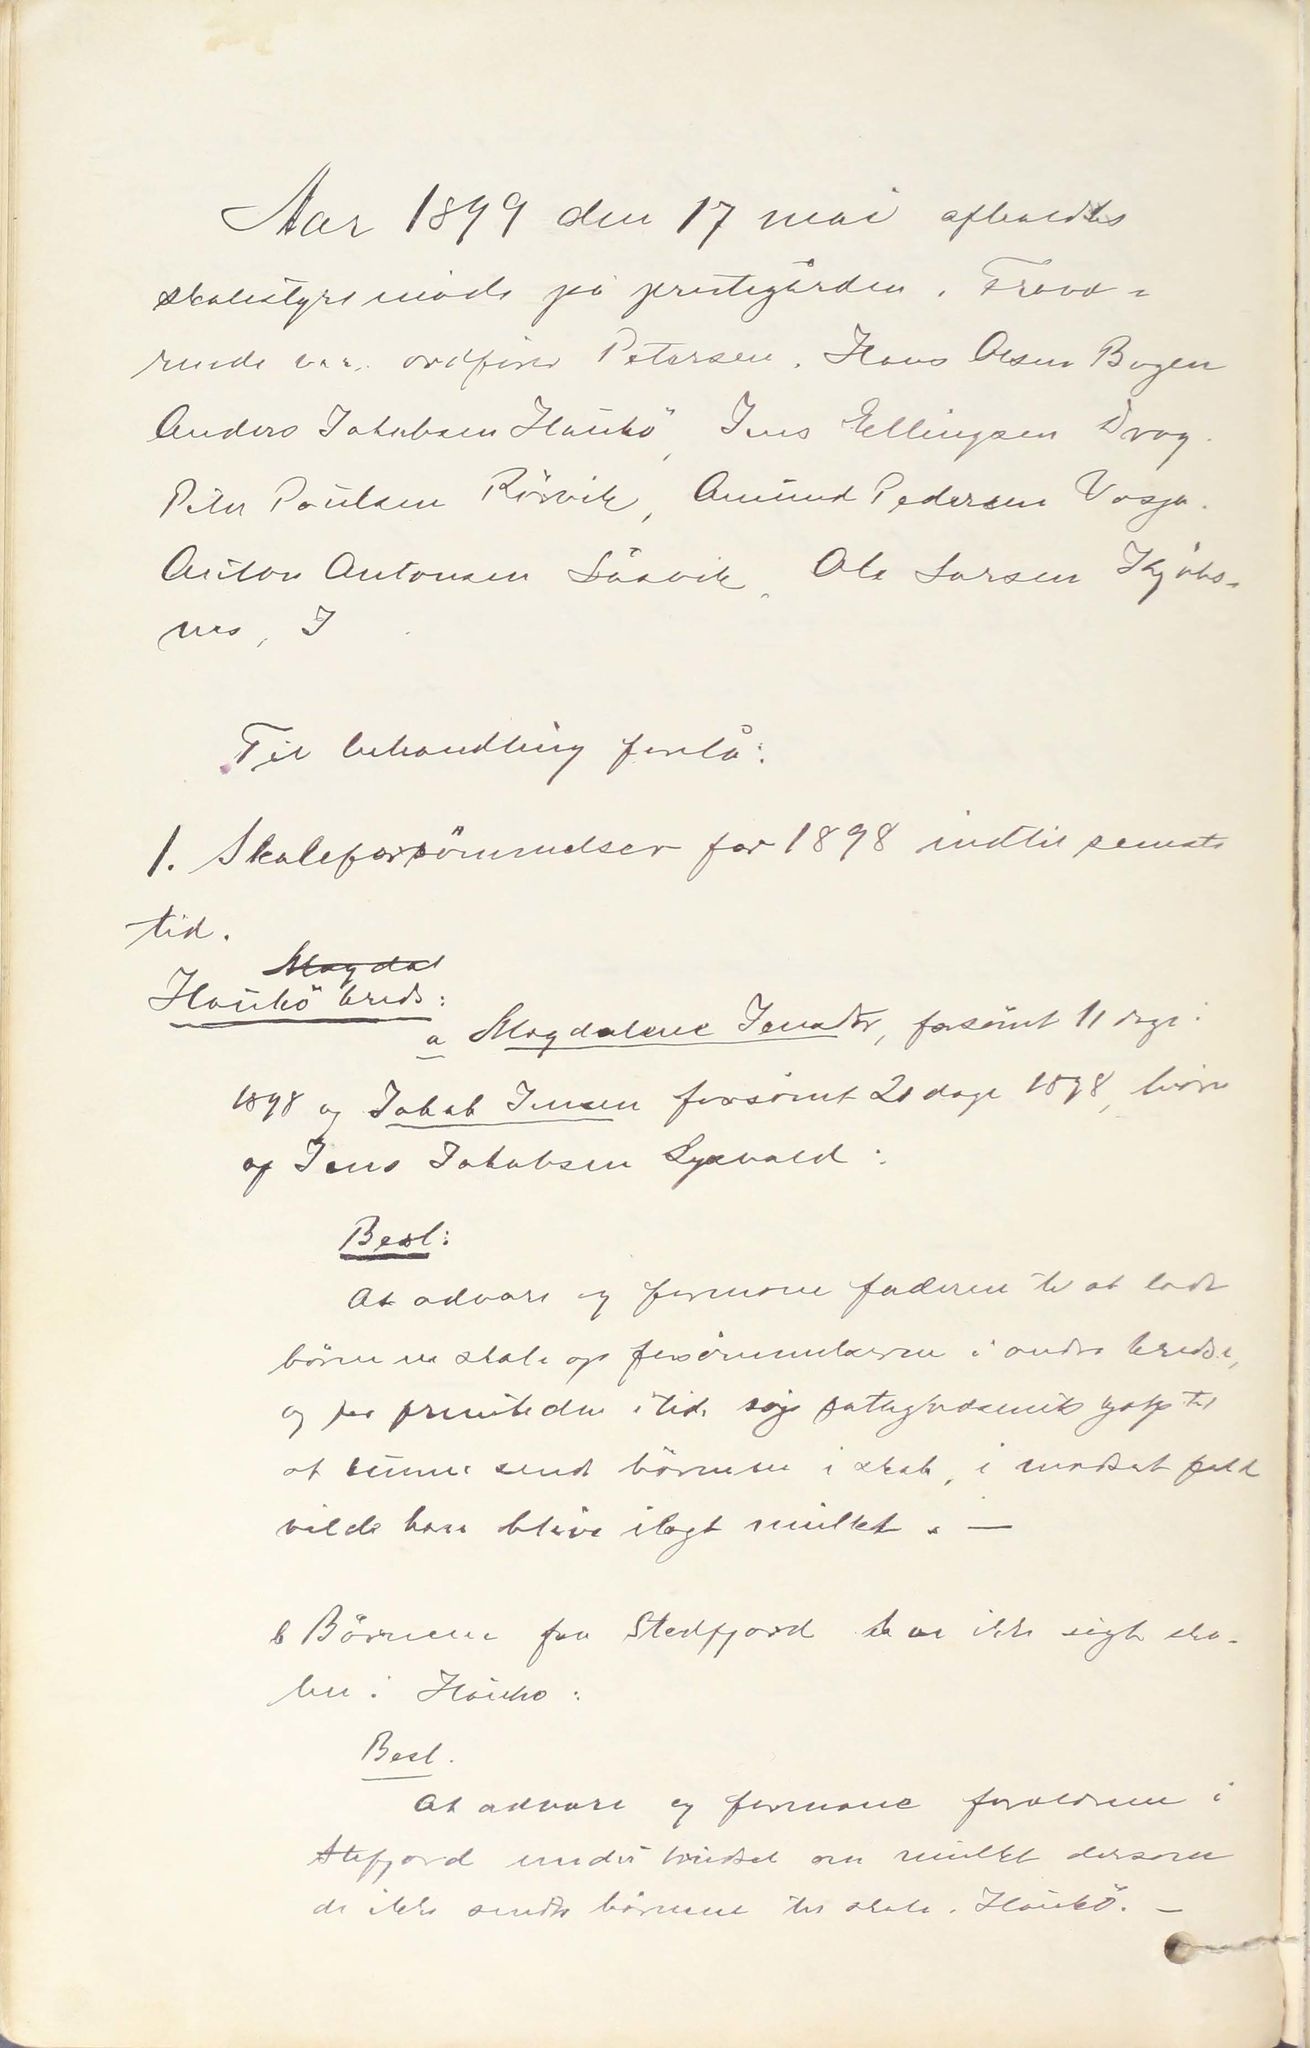 Aar 1899 den 17 mai afholdtes
skolestyremøde på prestegården. Treva-
rende var: ordfører Petersen. Hans Olsen Bogen
Anders Jakobsen Haukö, Jens Ellingsen Drag.
Peter Paulsen Rörvik, Amund Pedersen Vasja.
Anton Antonsen Låsvik, Ole Larsen Kjøbs-
nes, J
Til behandling forlå:
1. Skoleforsömmelser for 1898 indtil seneste
tid.
Magdal
Haukö kreds:
a Magdalene Jensdtr, forsömt 11 dage i
1898 og Jakob Jensen forsömt 21 dage 1898, börn
af Jens Jakobsen Lyxvold:
Besl:
At advare og formane faderen til at lade
börnene skole og forsömmelserne i andre kredse,
og for fremtiden i tide søge fattigvæsenets hjælp til
at kunne sende börnene i skole, i modsat fald
vilde han blive ilagt mulkt. —
b Börnene fra Stedfjord har ikke søgt sko-
len i Haukö:
Besl.
At advare og formane forældrene i
Stefjord under trudsel om mulkt dersom
de ikke sender börnene til skole i Haukö. —